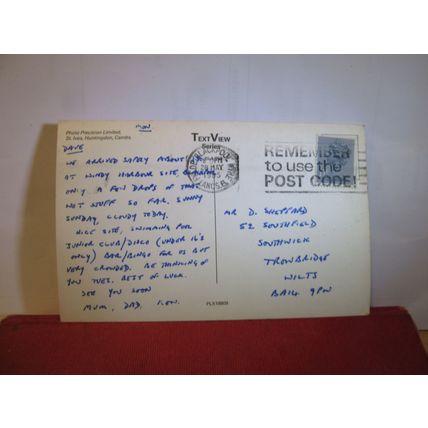 Photo Precision Limited,
St. Ives, Huntingdon, Cambs.
MON
DAVE
WE ARRIVED SAFELY ABOUT
AT WINDY HARBOUR SITE,
ONLY A FEW DROPS OF THAT
WET STUFF SO FAR. SUNNY
SUNDAY, CLOUDY TODAY.
NICE SITE, SWIMMING POOL
JUNIOR CLUB/DISCO (UNDER 16'S
ONLY) BAR/BINGO FOR US BUT
VERY CROWDED. BE THINKING OF
YOU TUES. BEST OF LUCK.
SEE YOU SOON
MUM, DAD,
TEXTVIEW
Series
PLX18809
BLACKPOOL
28 MAY
LANCS
REMEMBER
to use the
POST CODE!
MR D. SHEPPARD
52 SOUTHFIELD
SOUTHWICK
TROWBRIDGE
WILTS
BA14 9PW